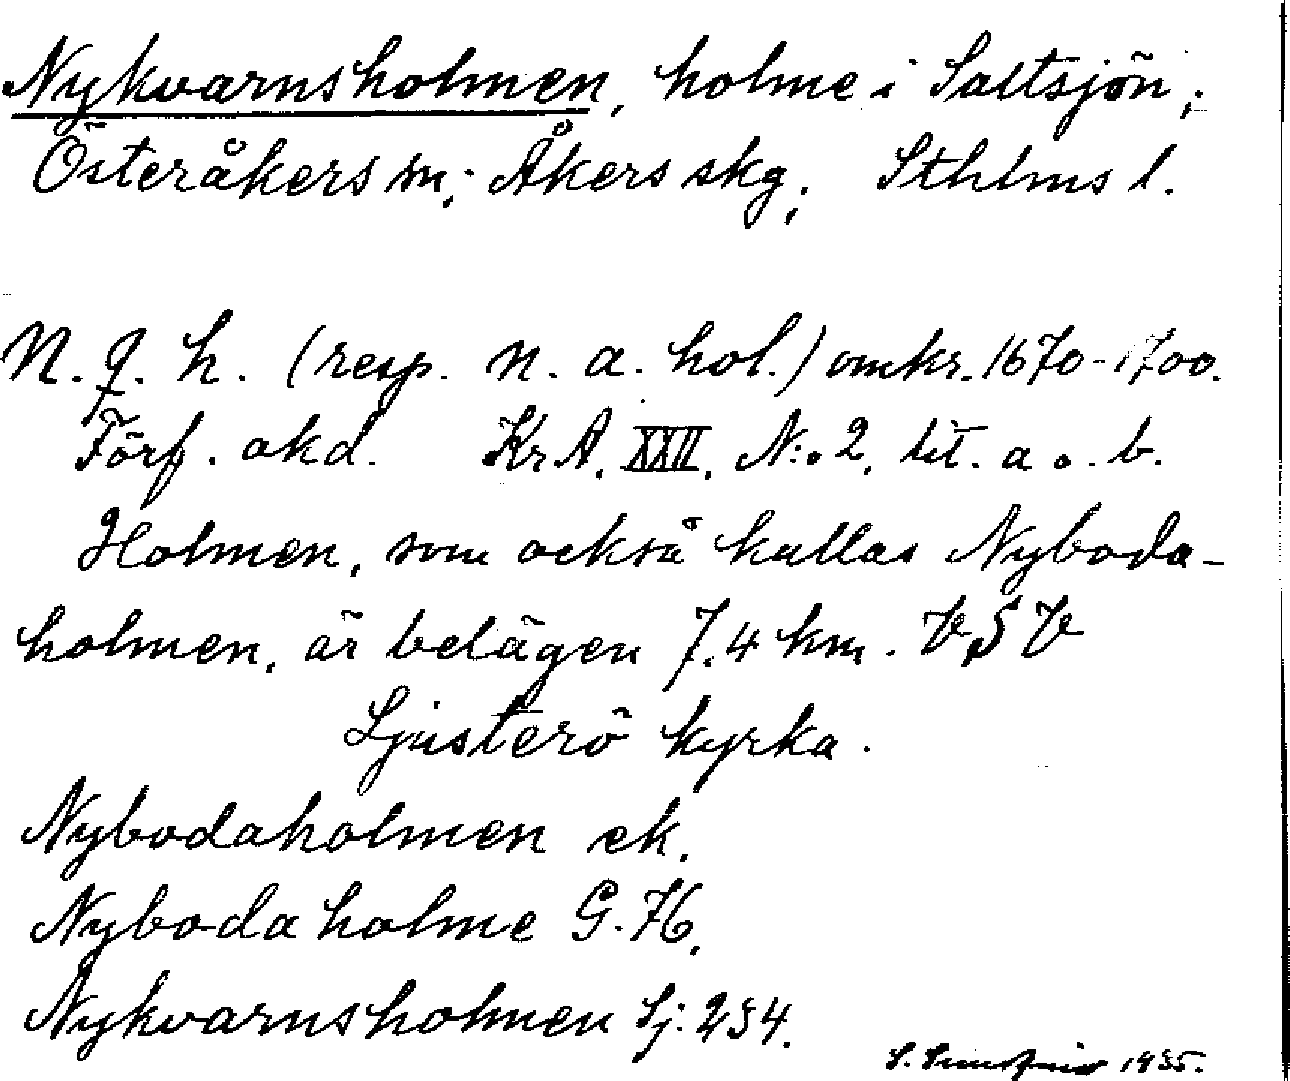 Nykvarnsholmen, holme i Saltsjön,
Österåkers sn, Åkers skg, Sthlms l.
N. q. h. (resp. n. a. hol.) omkr. 1670-1700.
Förf. okd. KrA. XXII. N:o 2. lit. a o. b.
Holmen, som också kallas Nyboda-
holmen, är belägen 7.4 km. VSV
Ljusterö kyrka.
Nybodaholmen ek.
Nybodaholme G.
Nykvarnsholmen Sj: 234.
S. 1935.